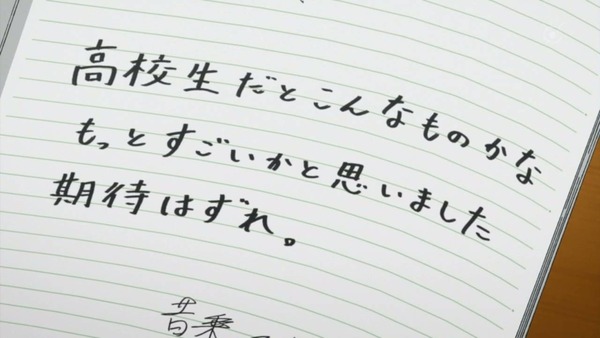 高校生だとこんなものかな
もっとすごいかと思いました
期待はずれ。
昔乗